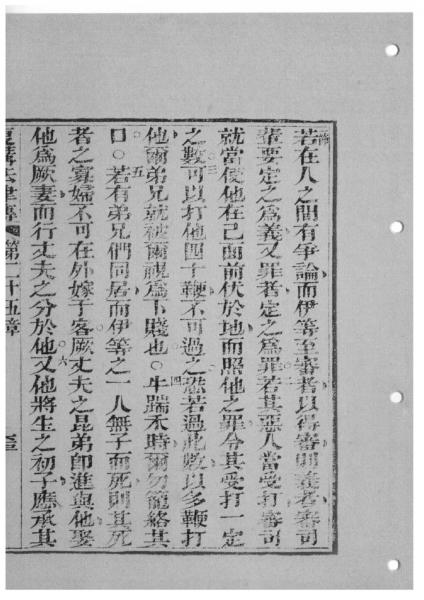 若在人之間有爭論而伊等至審者以得審則義者審司
輩要定之爲義又罪者定之爲罪若其惡人當受打審司
就當使他在己面前伏於地而照他之罪令其受打一定
之數可以打他四十鞭不可過之恐若過此數以多鞭打
他爾弟兄就被爾視爲下賤也○牛踹禾時爾勿籠絡其
口○若有弟兄們同居而伊等之一人無子而死則其死
者之寡婦不可在外嫁于客厥丈夫之昆弟卽進與他娶
他爲厥妻而行丈夫之分於他又他將生之初子應承其
復講法律傳 第二十五章